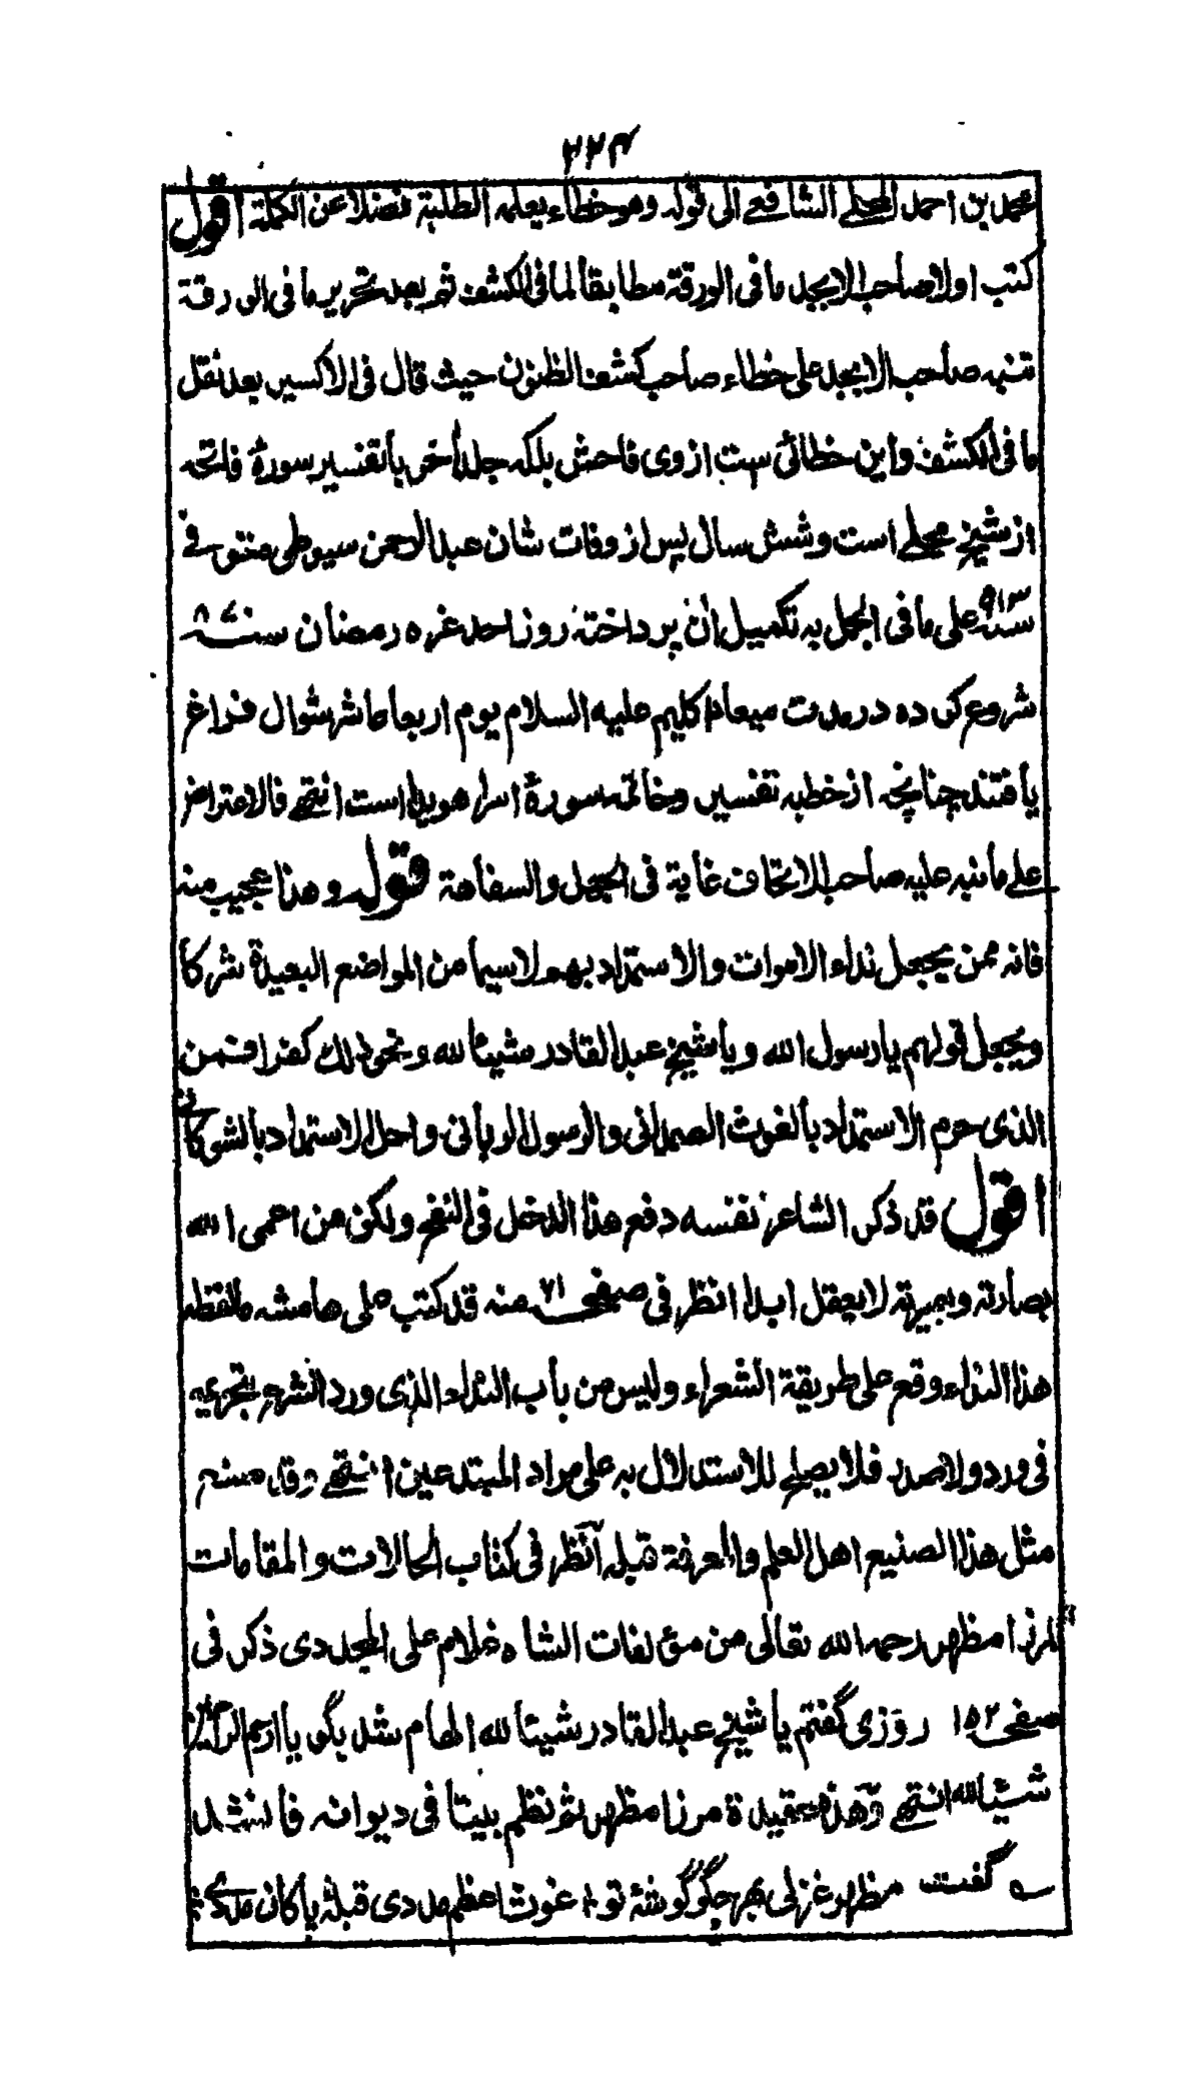 ٢٢٤
محمد بن احمد المحلے الشافعے الى قوله وهو خطاء يعلمه الطلبة فضلا عن الكملة اقول
كتب اولا صاحب الابجد ما فى الورقة مطابقا لما فى الكشف ثم بعد تحرير ما فى الورقة
تنبه صاحب الابجد على خطاء صاحب كشف الظنون حيث قال فى الاكسير بعد نقل
ما فى الكشف واين خطائى ست ازوى فاحش بلكه جلد آخر يا تفسير سورۀ فاتحه
از شيخ محلے است وشش سال پس از وفات شان عبد الرحمن سيوطى متوفے
سنه ٩١٣ على ما فى الجمل به تكميل آن پرداخته روز احد غره رمضان سنه ٨٧٠
شروع كرده در مدت ميعاد كليم عليه السلام يوم اربعا عاشر شوال فراغ
يافتند چنانچه از خطبه تفسير وخاتمه سورۀ اسرا هويدا است انتهے فالاعتراض
على ما نبه عليه صاحب الاتحاف غاية فى الجهل والسفاهة قوله وهذا عجيب منه
فانه ممن يجعل نداء الاموات والاستمداد بهم لاسيما من المواضع البعيدة شركا
ويجعل قولهم يا رسول الله ويا شيخ عبد القادر شيئا لله ونحو ذلك كفرا فمن
الذى حرم الاستمداد بالغوث الصمدانى والرسول الربانى واحل الاستمداد بالشوكانے
اقول قد ذكر الشاعر نفسه دفع هذا الدخل فى النفح ولكن من اعمى الله
بصارته وبصيرته لا يعقل ابدا انظر فى صفحه ٧١ منه قد كتب على هامشه ما لفظه
هذا النداء وقع على طريقة الشعراء وليس من باب النداء الذى ورد الشرع بتحريمه
فى ورد ولا صدر فلا يصلح للاستدلال به على مراد المبتدعين انتهے وقد صنع
مثل هذا الصنيع اهل العلم والمعرفة قبله آنظر فى كتاب الحالات والمقامات
لمرزا مظهر رحمه الله تعالى من مؤلفات الشاه غلام على المجددى ذكر فى
صفحه ١٥٢ روزى گفتم يا شيخ عبد القادر شيئا لله الهام شد بگو يا ارحم الراحمين
شيئا لله انتهے وهذه عقيدة مرزا مظهر ثم نظم بيتا فى ديوانه فانشد
ے گفت مظهر غزلى بهر جگر گوشۀ تو ٭ غوث اعظم مددى قبلۀ پاكان مددے ٭